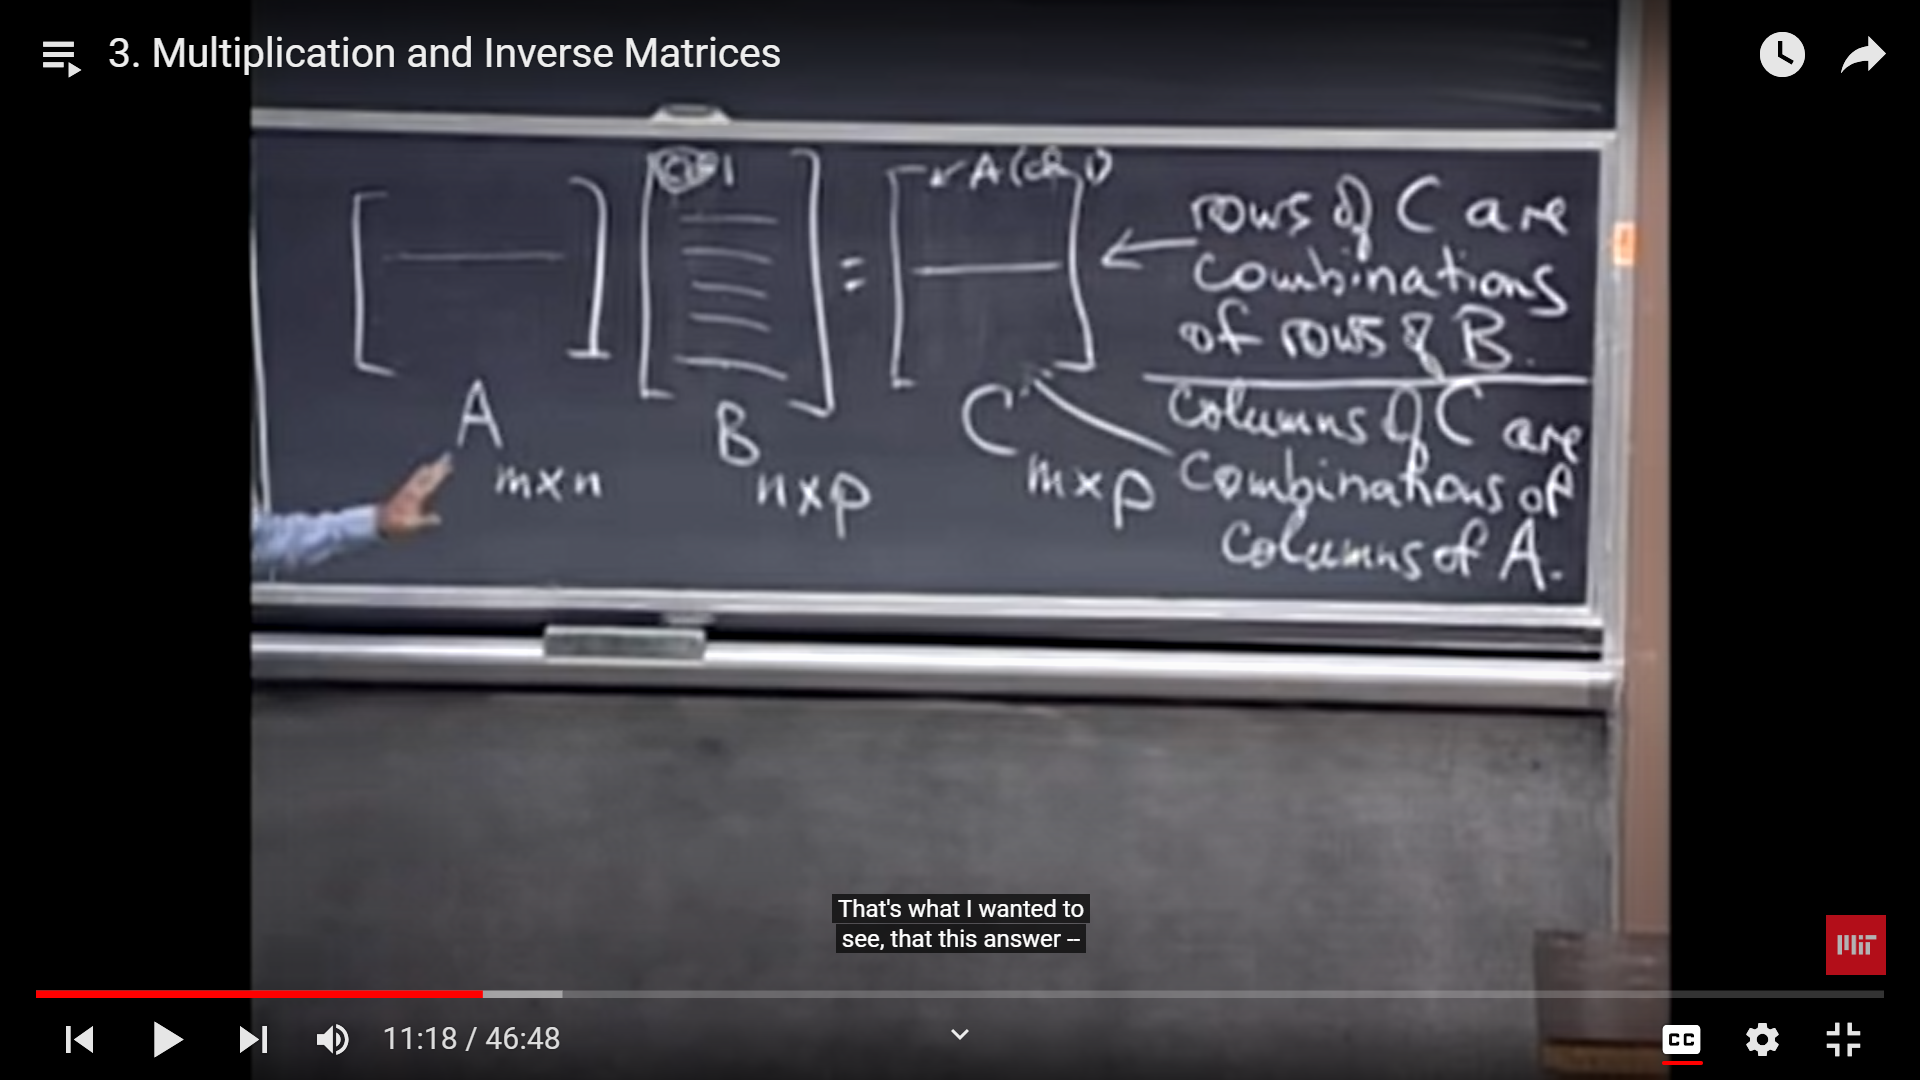 3. Multiplication and Inverse Matrices
A(col 1)
rows of C are
combinations
of rows of B.
=
columns of C are
combinations of
columns of A.
A
m×n
B
n×p
C
m×p
That's what I wanted to
see, that this answer --
MIT
11:18 / 46:48
CC